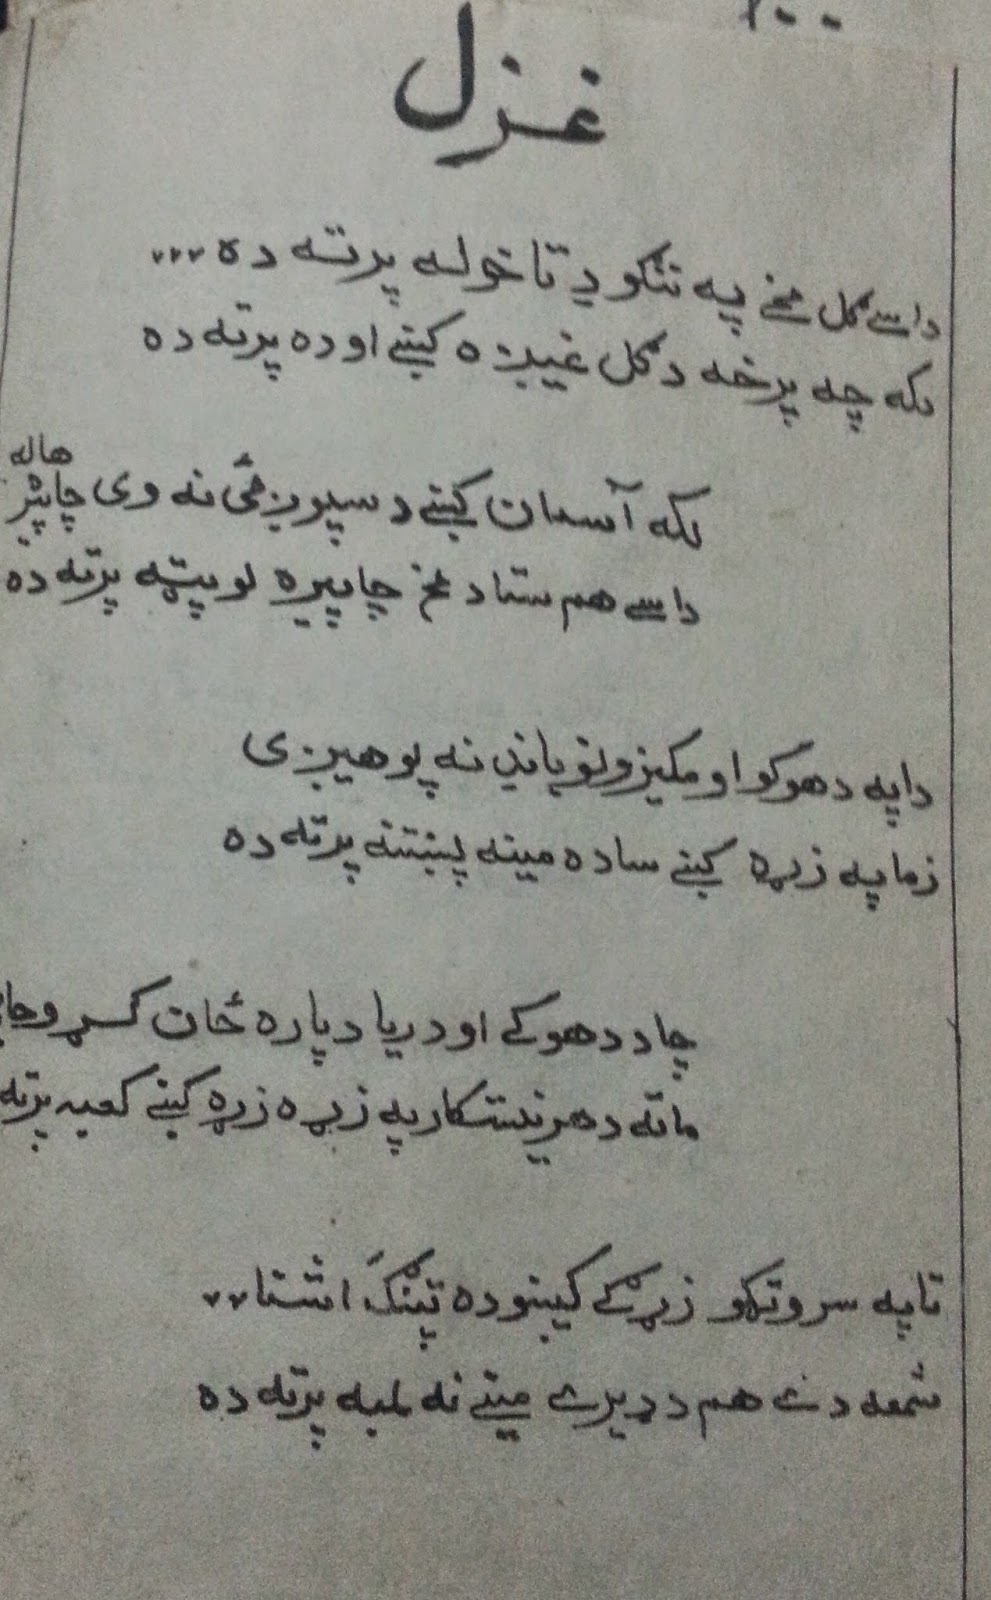 غزل
داسے ګل مخے په تنکو دِ تا خوله پرته ده...
لکه چه پرخه د ګل غیږه کښے اوده پرته ده
لکه آسمان کښے د سپوږمئ نه وی چاپیر هاله
داسے هم ستا د مخ چاپیره لوپټه پرته ده
دا په دهوکو او مکیزونو باندِ نه پوهیږی
زما په زړه کښے ساده مینه پښتنه پرته ده
چا د دهوکے او دریا دپاره ځان کړو
ماته د هر په زړه زړه کښے کعبه پرته
تا په سروټکو زړګے کیښوده پتنګَ اشنا..
شمعه دے هم د ډیرے مینے نه لمبه پرته ده